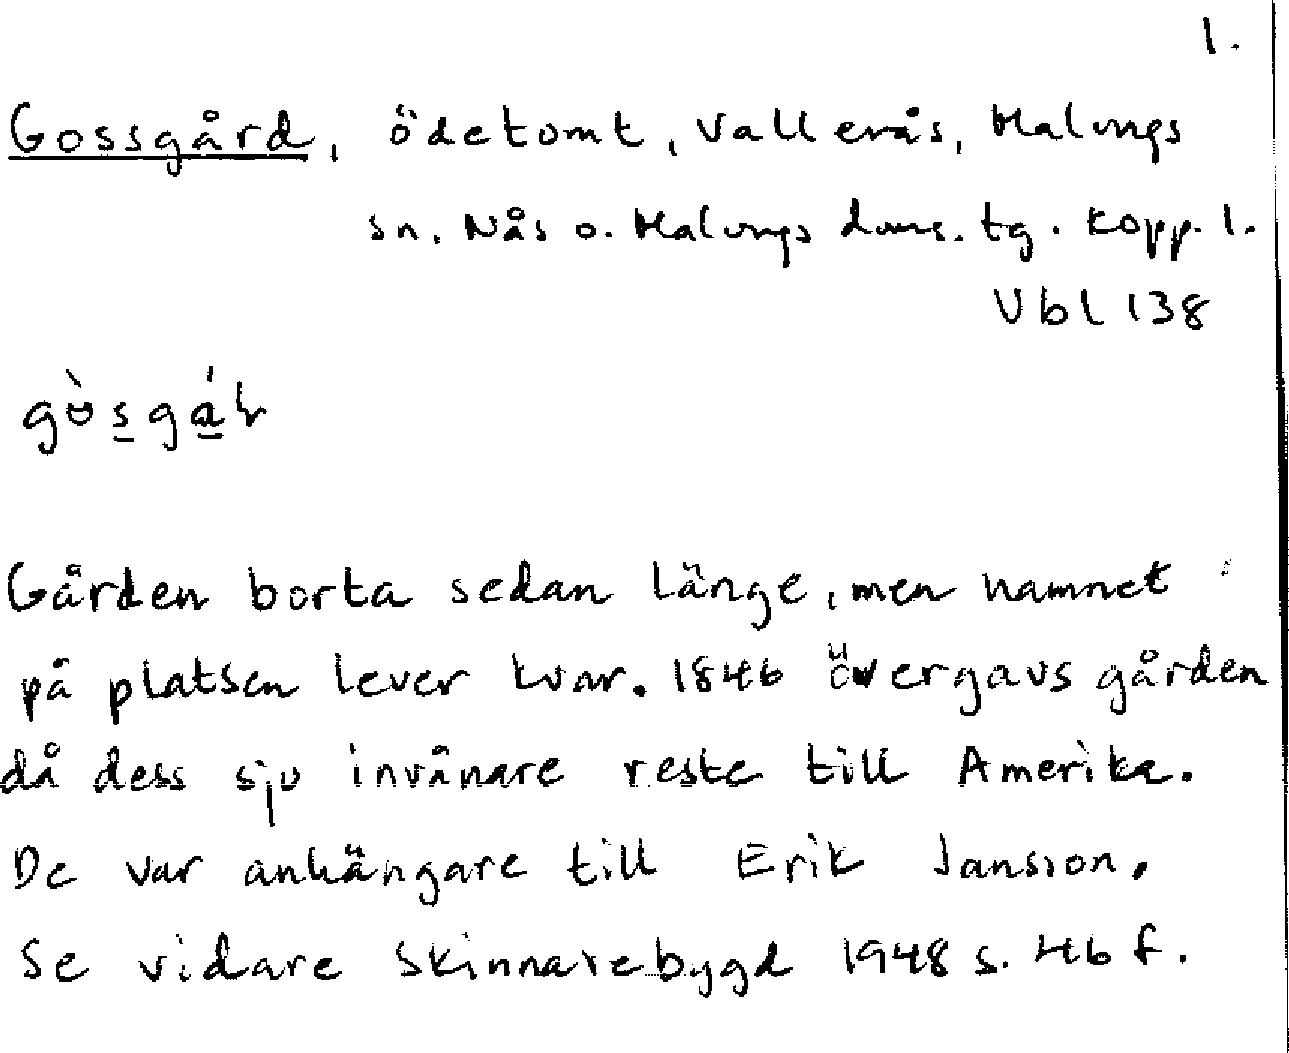 1.
Gossgård, ödetomt, Vallerås, Malungs
sn. Nås o. Malungs doms. tg. Kopp. l.
Vbl 138
Gården borta sedan länge, men namnet
på platsen lever kvar. 1846 övergavs gården
då dess sju invånare reste till Amerika.
De var anhängare till Erik Jansson.
Se vidare Skinnarebygd 1948 s. 46 f.